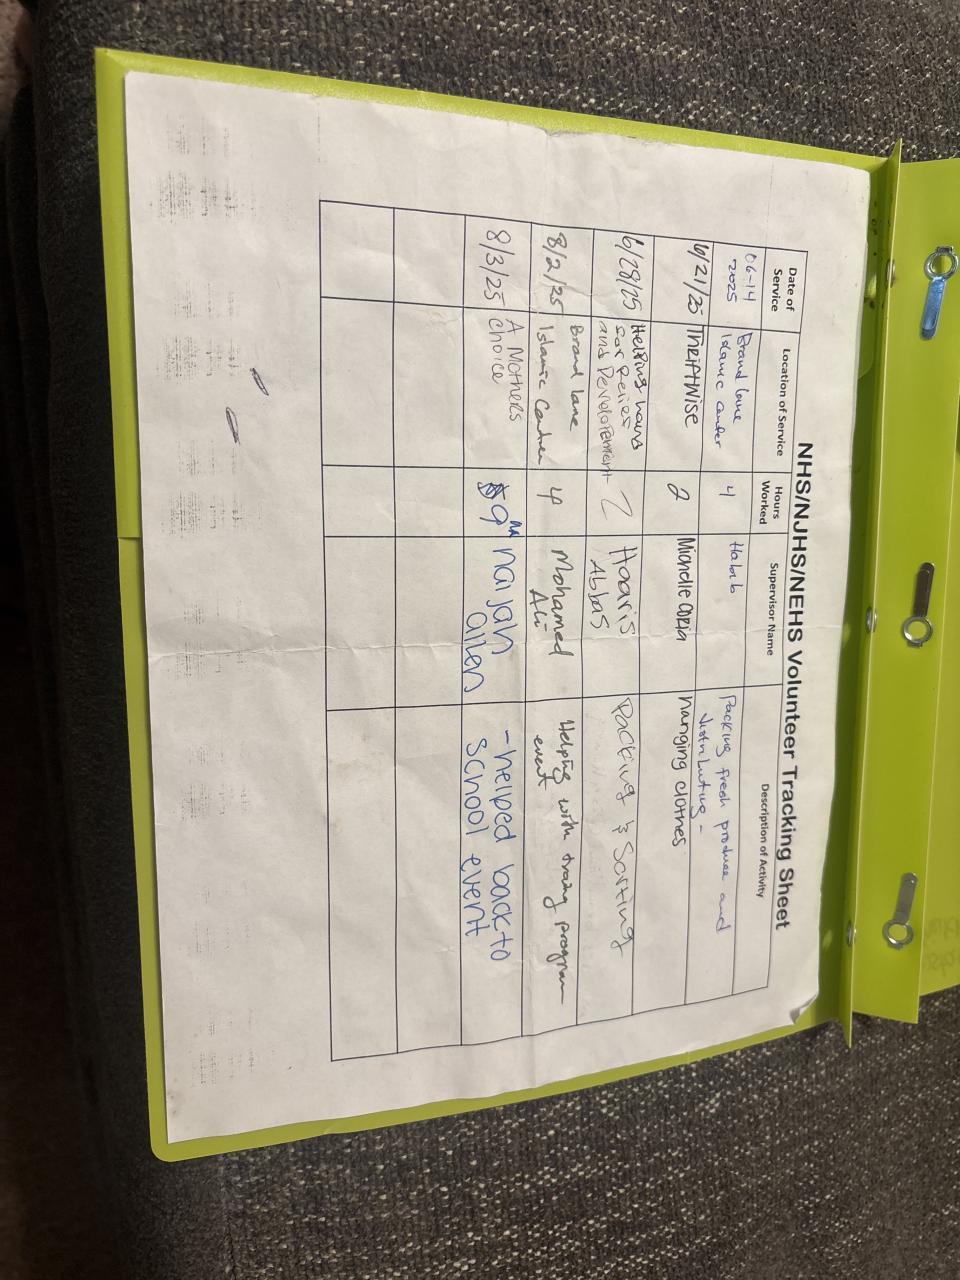 NHS/NJHS/NEHS Volunteer Tracking Sheet
Date of
Service
Location of Service
Hours
Worked
Supervisor Name
Description of Activity
06-14
2025
Brand lane
Islamic center
4
Habib
Packing fresh produce and
distributing -
6/21/25
Thriftwise
2
Michelle
hanging clothes
6/28/25
Helping hands
for Relief
and Development
2
Haaris
Abbas
Packing & Sorting
8/2/25
Brand lane
Islamic Center
4
Mohamed
Ali
Helping with program
event
8/3/25
A Mothers
choice
9
naijah
allen
- helped back to
school event